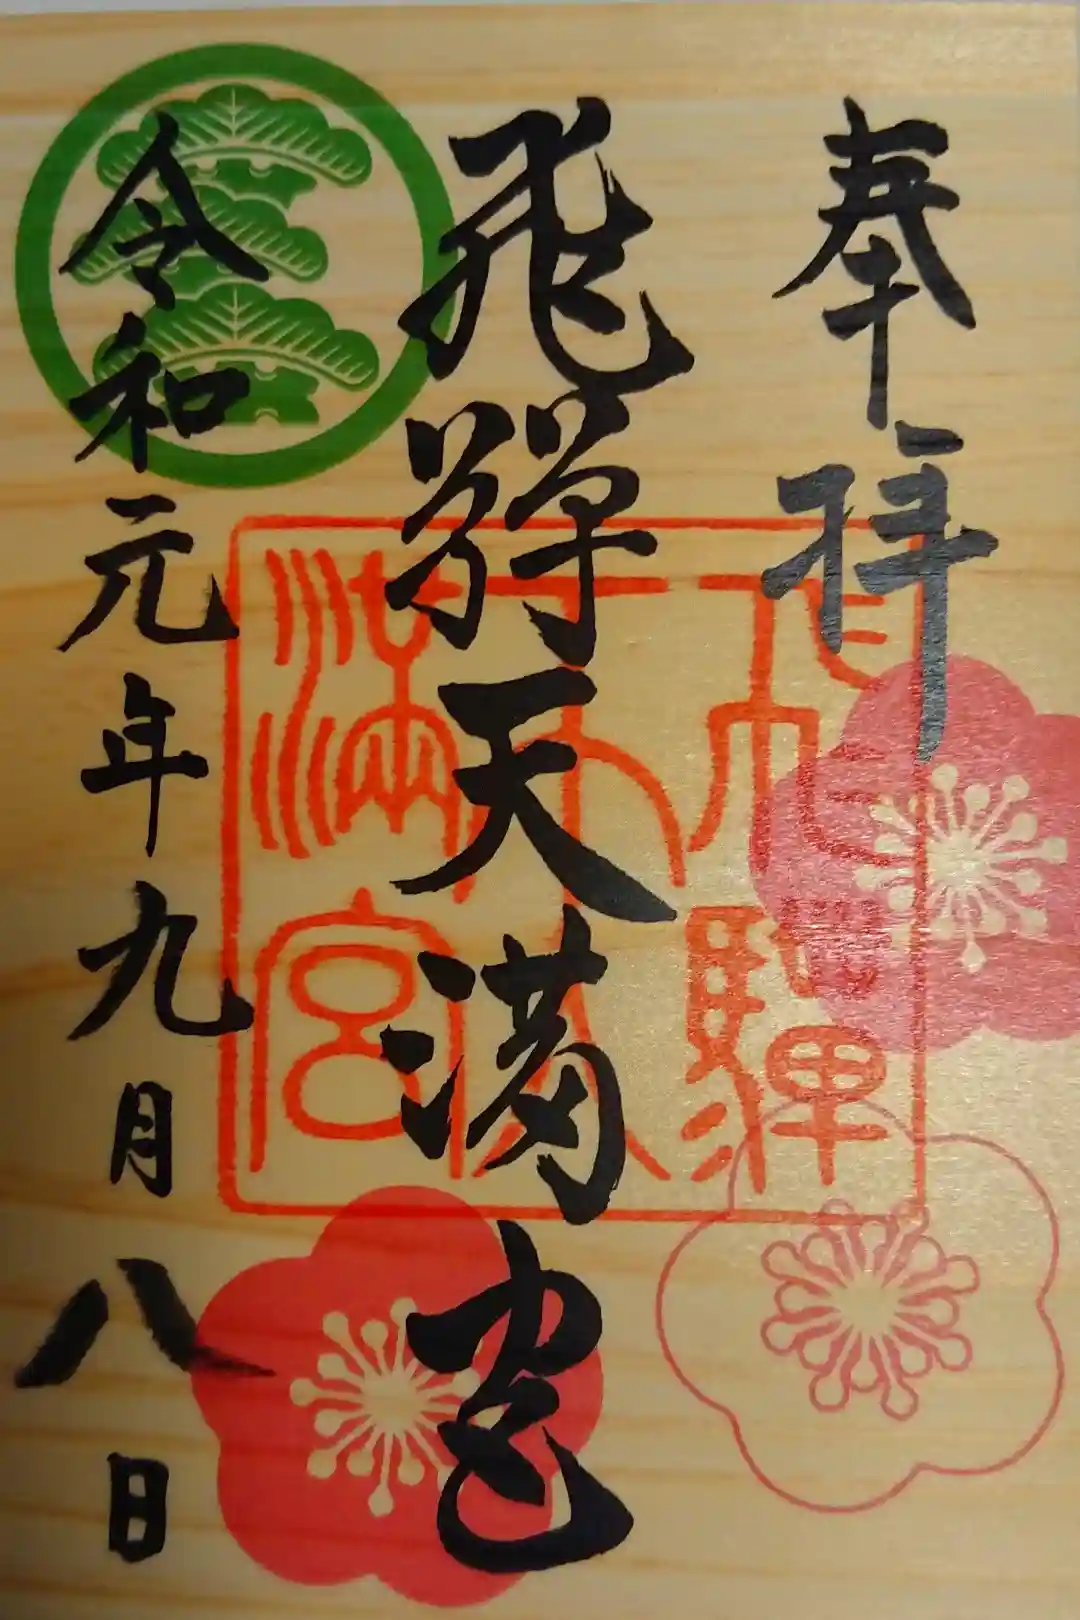 奉拝
飛騨天満宮
令和元年九月八日
満宮